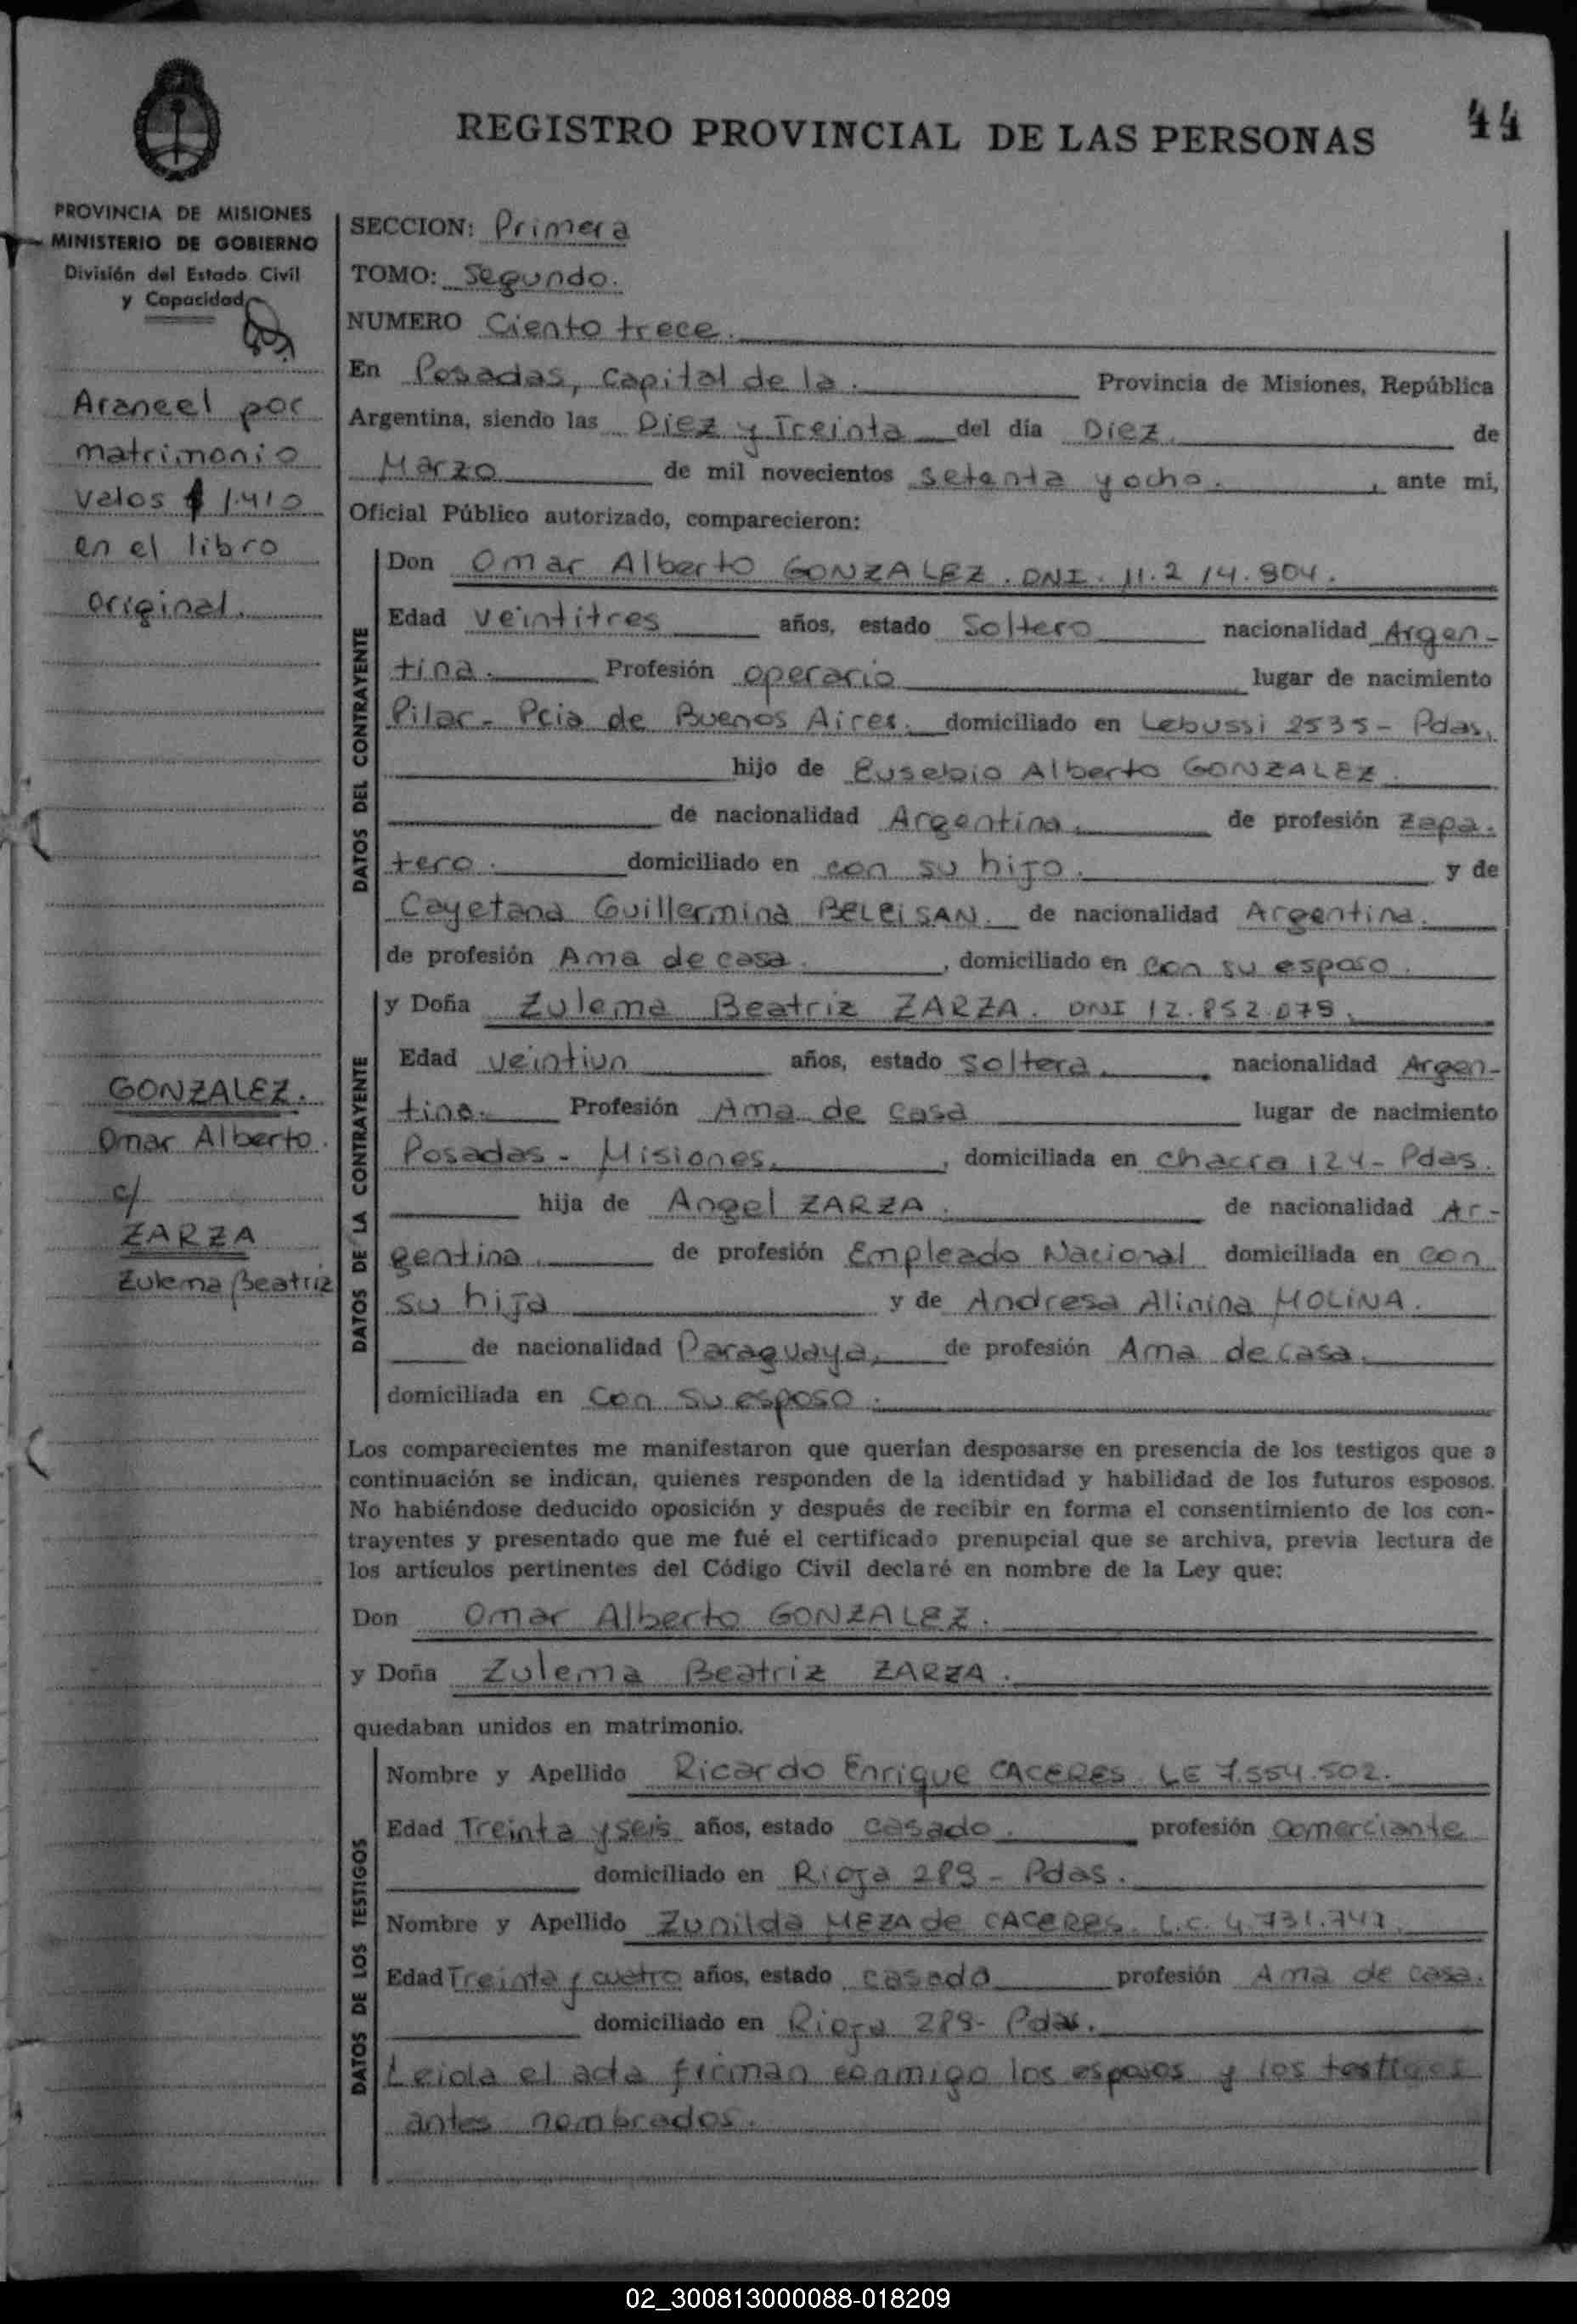 REGISTRO PROVINCIAL DE LAS PERSONAS
44
PROVINCIA DE MISIONES
MINISTERIO DE GOBIERNO
División del Estado Civil
y Capacidad
Arancel por
matrimonio
valos $ 1.410
en el libro
original.
GONZALEZ.
Omar Alberto.
c/
ZARZA
Zulema Beatriz
SECCION: Primera
TOMO: Segundo.
NUMERO Ciento trece.
En Posadas, Capital de la. Provincia de Misiones, República
Argentina, siendo las Diez y Treinta del día Diez. de
Marzo de mil novecientos setenta y ocho. , ante mi,
Oficial Público autorizado, comparecieron:
DATOS DEL CONTRAYENTE
Don Omar Alberto GONZALEZ. DNI. 11.214.904.
Edad veintitres años, estado Soltero nacionalidad Argen-
tina. Profesión operario lugar de nacimiento
Pilar - Pcia de Buenos Aires. domiciliado en Lebussi 2535 - Pdas.
hijo de Eusebio Alberto GONZALEZ.
de nacionalidad Argentina. de profesión Zapa-
tero. domiciliado en con su hijo. y de
Cayetana Guillermina BELEISAN. de nacionalidad Argentina.
de profesión Ama de casa. , domiciliado en con su esposo.
DATOS DE LA CONTRAYENTE
y Doña Zulema Beatriz ZARZA. DNI 12.852.079.
Edad veintiun años, estado soltera. nacionalidad Argen-
tina. Profesión Ama de casa lugar de nacimiento
Posadas - Misiones. , domiciliada en chacra 124 - Pdas.
hija de Angel ZARZA. de nacionalidad Ar-
gentina. de profesión Empleado Nacional domiciliada en con
su hija y de Andresa Alinina MOLINA.
de nacionalidad Paraguaya, de profesión Ama de casa.
domiciliada en con su esposo.
Los comparecientes me manifestaron que querían desposarse en presencia de los testigos que a
continuación se indican, quienes responden de la identidad y habilidad de los futuros esposos.
No habiéndose deducido oposición y después de recibir en forma el consentimiento de los con-
trayentes y presentado que me fué el certificado prenupcial que se archiva, previa lectura de
los artículos pertinentes del Código Civil declaré en nombre de la Ley que:
Don Omar Alberto GONZALEZ.
y Doña Zulema Beatriz ZARZA.
quedaban unidos en matrimonio.
DATOS DE LOS TESTIGOS
Nombre y Apellido Ricardo Enrique CACERES LE 7.554.502.
Edad Treinta y seis años, estado casado. profesión Comerciante
domiciliado en Rioja 289 - Pdas.
Nombre y Apellido Zunilda MEZA de CACERES. L.C. 4.731.747.
Edad Treinta y cuatro años, estado casada profesión Ama de casa.
domiciliado en Rioja 289 - Pdas.
Leida el acta firman conmigo los esposos y los testigos
antes nombrados.
02_300813000088-018209